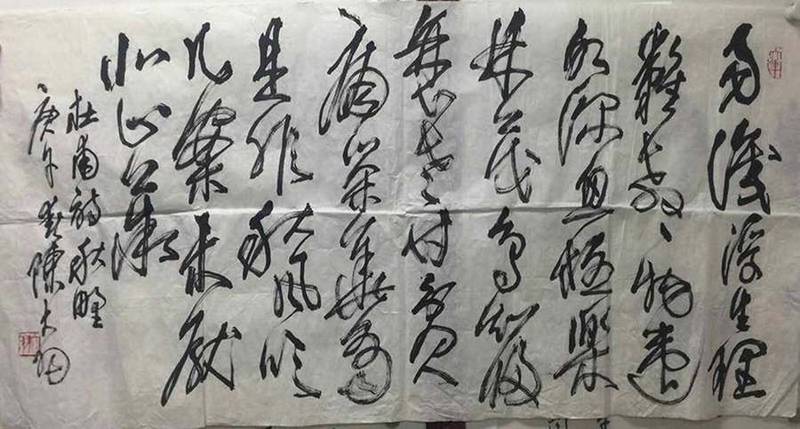 易識浮生理
難教一物違
水深魚極樂
林茂鳥知歸
老 貧
病榮華有
是非秋風吹
几 厭
北山薇
杜甫詩秋野
庚子 陳大